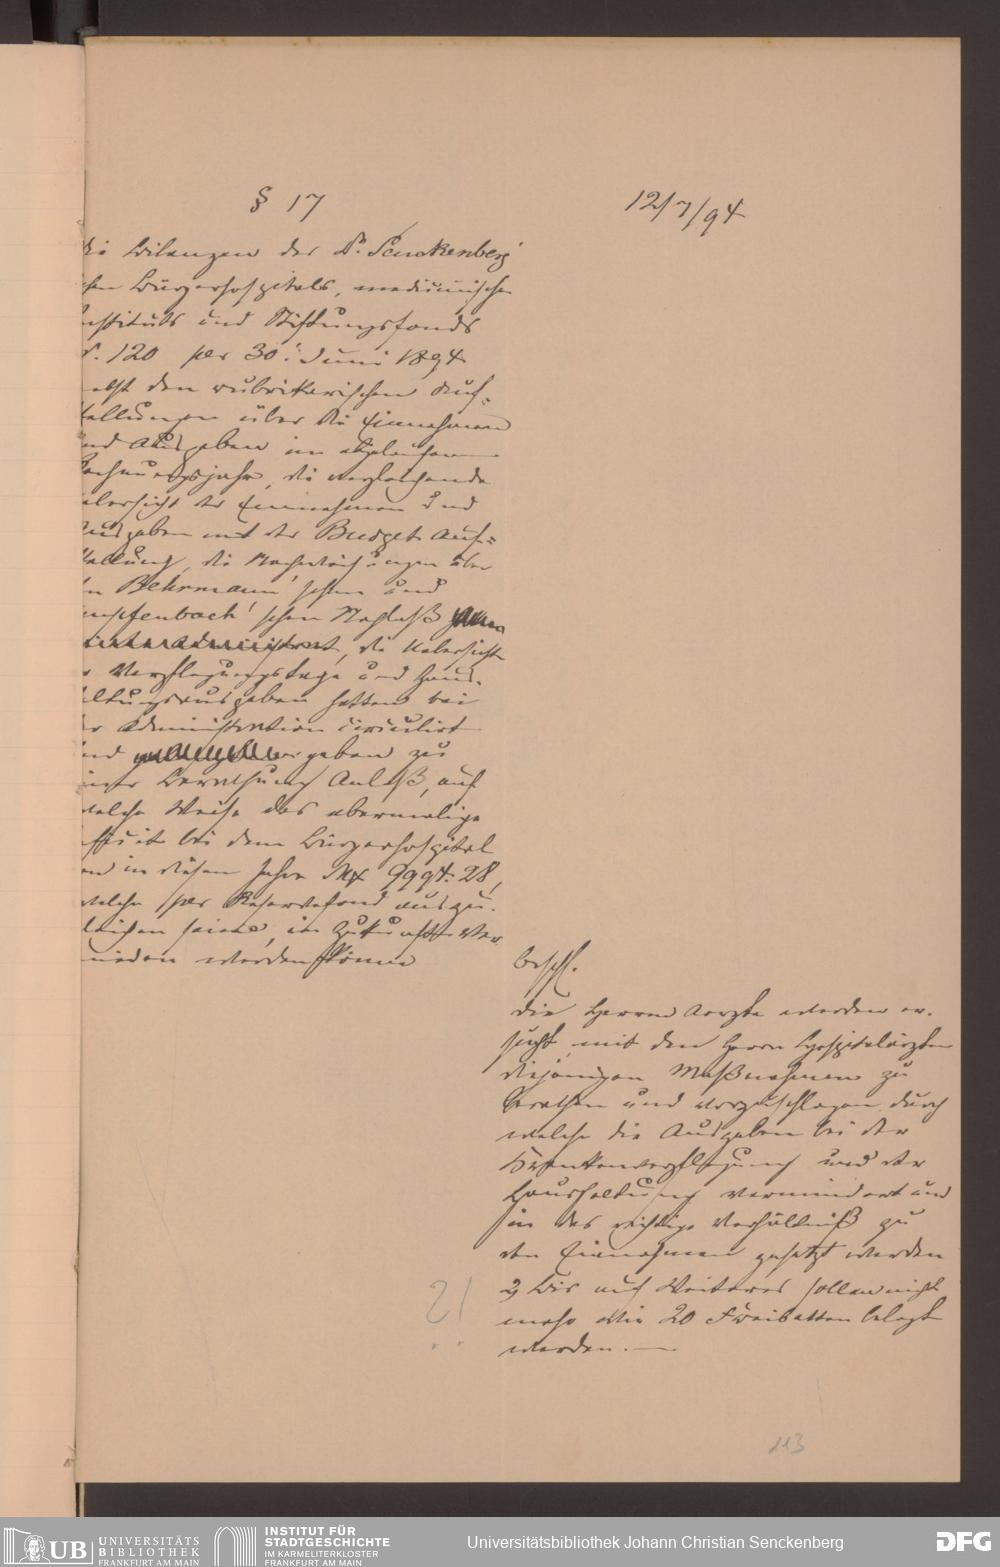 § 17
12/7/94
die Bilanzen des Dr. Senckenberg'
schen Bürgerhospitals, medicinischen
Instituts und Stiftungsfonds
N. 120 per 30. Juni 1894
nebst den rubrikarischen Auf-
stellungen über die Einnahmen
und Ausgaben im abgelaufenen
Rechnungsjahr, die vergleichende
Uebersicht der Einnahmen und
Ausgaben mit der Budget Auf-
stellung, die über
den Behrmann'schen und
'schen Nachlaß
die Uebersicht
der Verpflegungstage und Haus-
haltungsausgaben hatten bei
der Administration circulirt
und geben zu
einer Berathung Anlaß, auf
welche Weise das abermalige
Deficit bei dem Bürgerhospital
in diesem Jahre M 9994.28,
welche per Reservefond auszu-
gleichen seien, in Zukunft ver
mieden werden könne
beschl.
die Herren Aerzte werden er-
sucht, mit den Herrn Hospitalärzten
diejenigen Maßnahmen zu
berathen und vorzuschlagen durch
welche die Ausgaben bei der
Krankenverpflegung und der
Haushaltung vermindert und
in das richtige Verhältniß zu
den Einnahmen gesetzt werden
2, Bis auf Weiteres sollen nicht
mehr wie 20 Freibetten belegt
werden. —
113
UB UNIVERSITÄTS
BIBLIOTHEK
FRANKFURT AM MAIN
INSTITUT FÜR
STADTGESCHICHTE
IM KARMELITERKLOSTER
FRANKFURT AM MAIN
Universitätsbibliothek Johann Christian Senckenberg
DFG